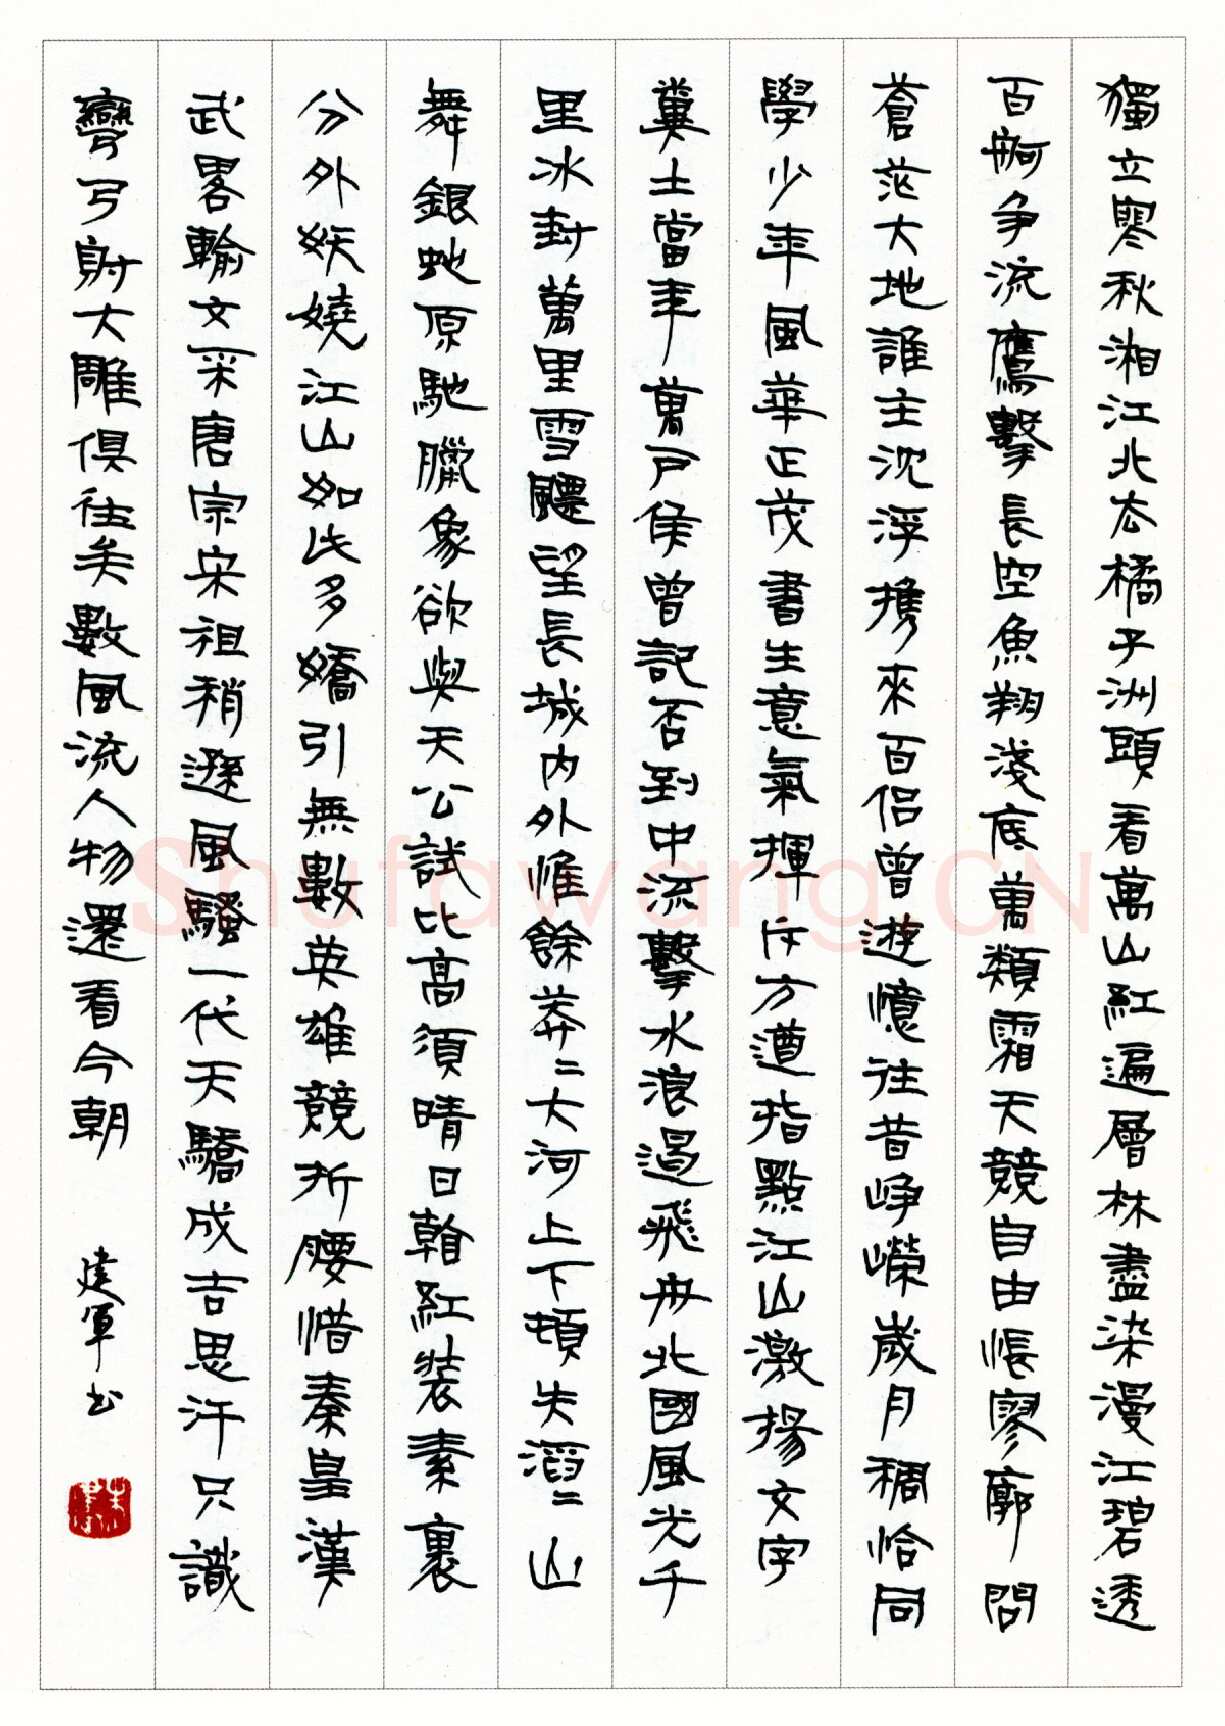 獨立寒秋湘江北去橘子洲頭看萬山紅遍層林盡染漫江碧透
百舸争流鷹擊長空魚翔淺底萬類霜天競自由悵廖廓問
蒼茫大地誰主沈浮携來百侶曾遊憶往昔崢嶸歲月稠恰同
學少年風華正茂書生意氣揮斥方遒指點江山激揚文字
糞土當年萬户侯曾記否到中流擊水浪遏飛舟北國風光千
里冰封萬里雪飄望長城内外惟餘莽〻大河上下頓失滔〻山
舞銀蛇原馳臘象欲與天公試比高須晴日看紅裝素裹
分外妖嬈江山如此多嬌引無數英雄競折腰惜秦皇漢
武畧輸文采唐宗宋祖稍遜風騷一代天驕成吉思汗只識
彎弓射大雕俱往矣數風流人物還看今朝 建軍书
Shufawang.CN